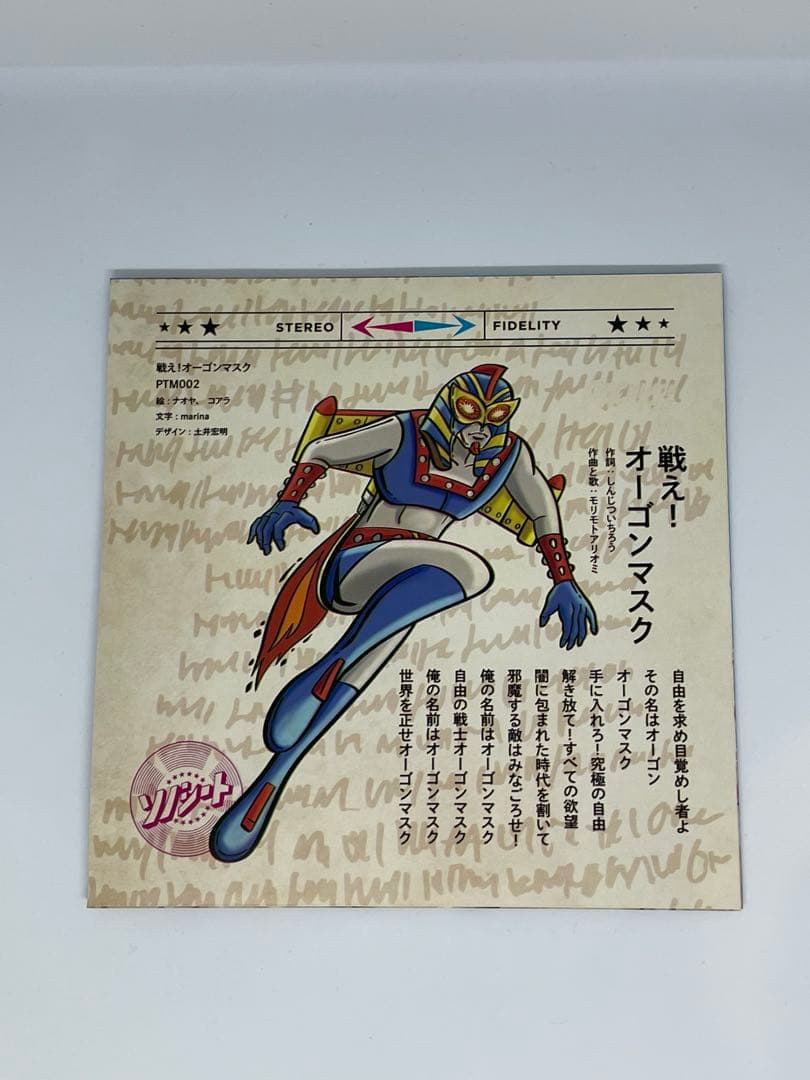 ★★★ STEREO FIDELITY ★★★
戦え!オーゴンマスク
PTM002
絵:ナオヤ、コアラ
文字:marina
デザイン:土井宏明
戦え!
オーゴンマスク
作詞:しんじついちろう
作曲と歌:モリモトアリオミ
自由を求め目覚めし者よ
その名はオーゴン
オーゴンマスク
手に入れろ!究極の自由
解き放て!すべての欲望
闇に包まれた時代を割いて
邪魔する敵はみなごろせ!
俺の名前はオーゴンマスク
自由の戦士オーゴンマスク
俺の名前はオーゴンマスク
世界を正せオーゴンマスク
ソノシート